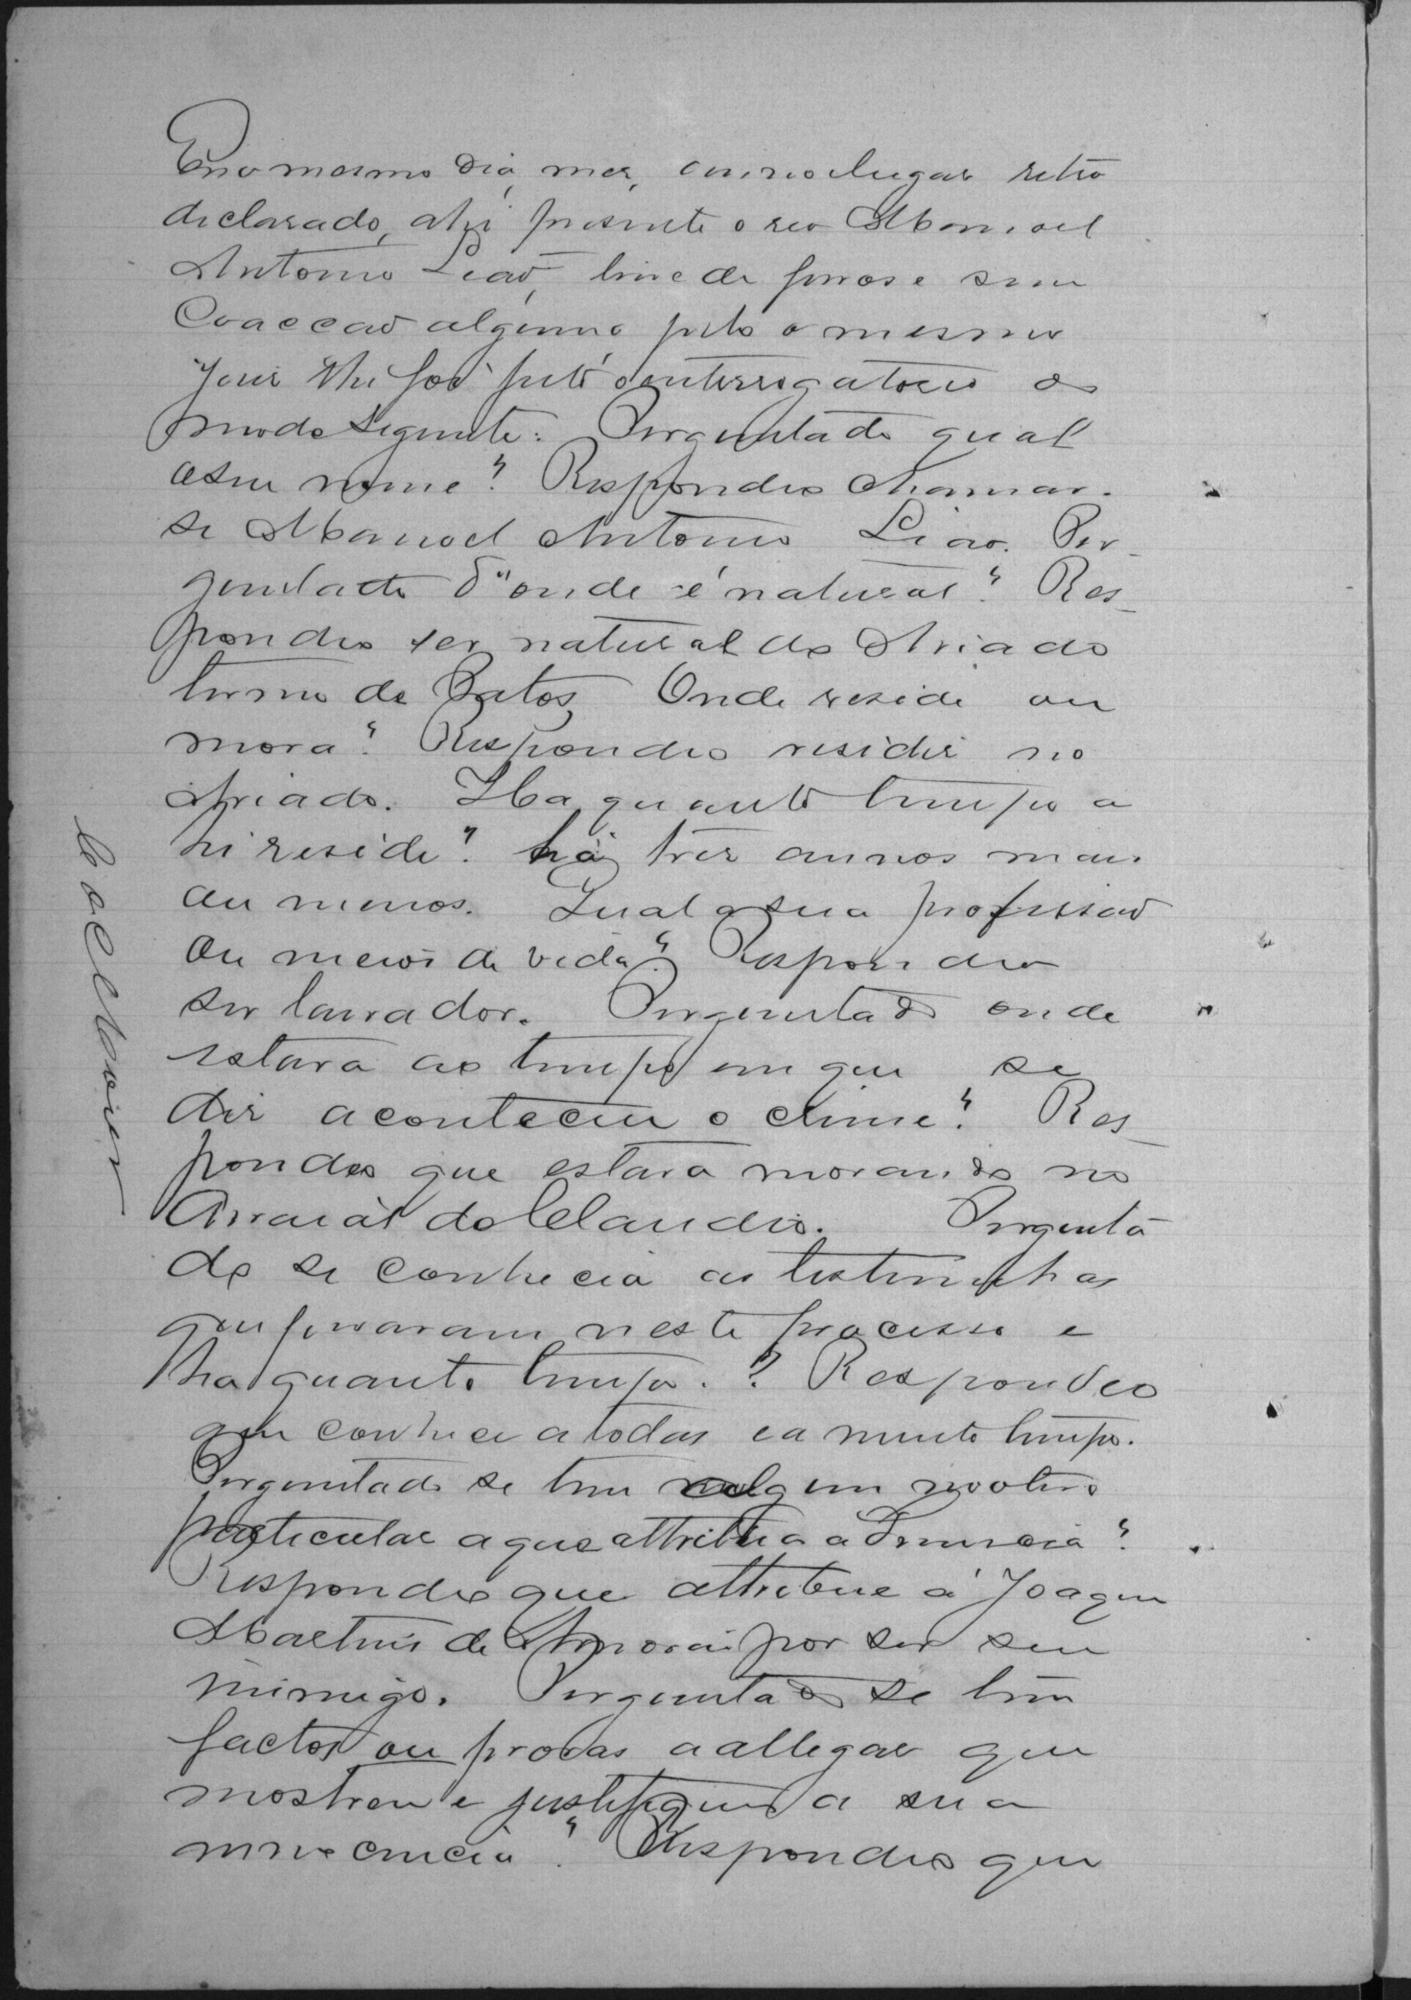 Eno mesmo dia, mez, anno e lugar retro
declarado, ahi presente o reo Manoel
Antonio Leão, livre de ferros e sem
Coacção alguma pelo o mesmo
Juiz lhe foi feito o interrogatorio do
modo seguinte: Perguntado qual
o seu nome? Respondeo chamar-
se Manoel Antonio Leão. Per-
guntado d'onde é natural? Res-
pondeo ser natural do Ariado
termo de Patos, Onde reside ou
mora? Respondeo residir no
Ariado. Ha quanto tempo a
hi reside? há tres annos mais
ou menos. Qual a sua profissão
ou meios de vida? Respondeo
ser lavrador. Perguntado onde
estava ao tempo em que se
diz aconteceu o crime? Res-
pondeo que estava morando no
Arraial do Claudio. Pergunta
do se conhecia as testemunhas
que juraram neste processo e
ha quanto tempo.? Respondeo
que conhece a todas e a muito tempo.
Perguntado se tem algum motivo
particular a que attribua a Denuncia?
Respondeo que attribue á Joaquim
Martins de Amorim por ser seu
inimigo. Perguntado se tem
factos ou provas a allegar que
mostrem e justifiquem a sua
innocencia? Respondeo que